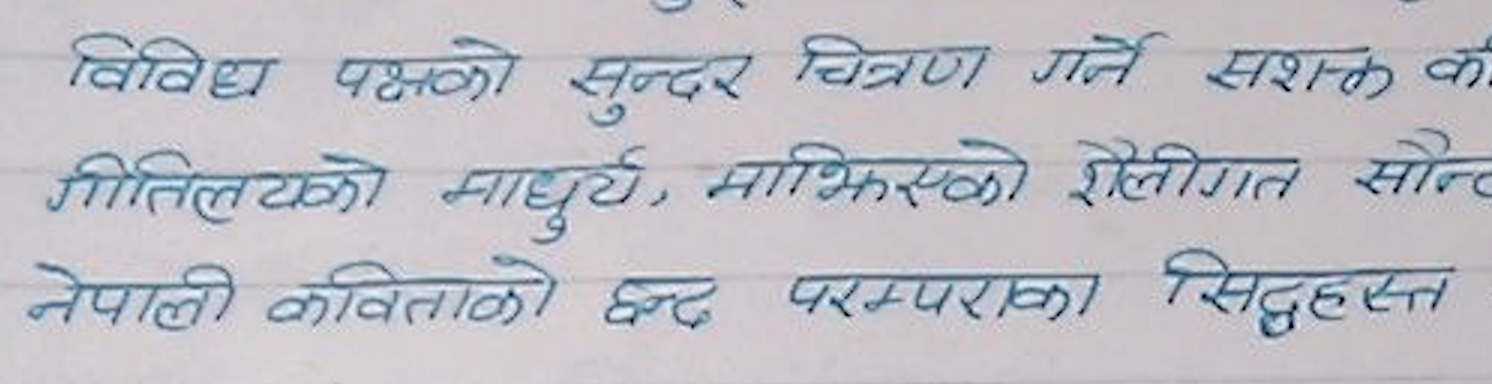 विविध पक्षको सुन्दर चित्रण गर्ने सशक्त
गीतिलयको माधुर्य, माझिएको शैलीगत
नेपाली कविताको छन्द परम्पराका सिद्धहस्त